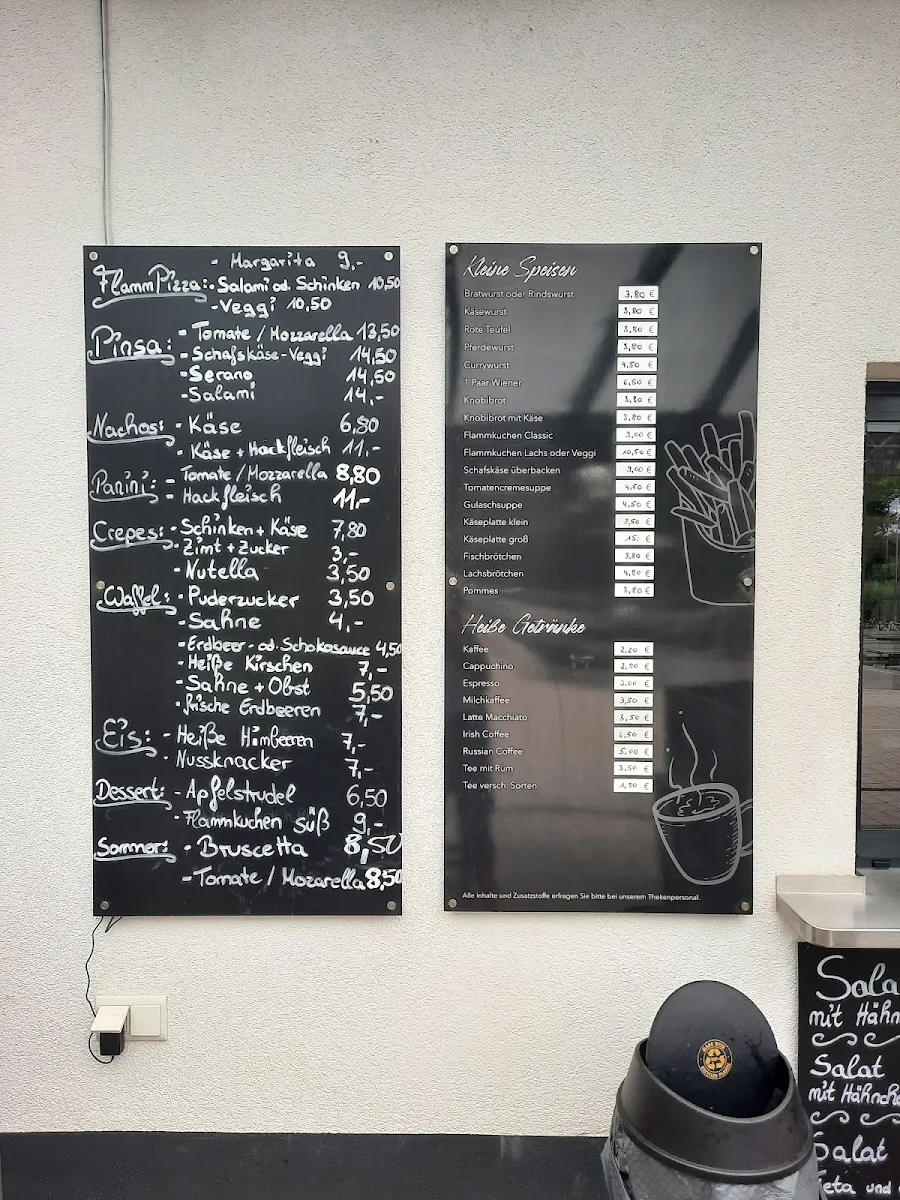 - Margarita 9,-
FlammPizza: - Salami od. Schinken 10,50
- Veggi 10,50
Pinsa: - Tomate / Mozzarella 13,50
- Schafskäse-Veggi 14,50
- Serano 14,50
- Salami 14,-
Nachos: - Käse 6,80
- Käse + Hackfleisch 11,-
Panini: - Tomate / Mozzarella 8,80
- Hackfleisch 11,-
Crepes: - Schinken + Käse 7,80
- Zimt + Zucker 3,-
- Nutella 3,50
Waffel: - Puderzucker 3,50
- Sahne 4,-
- Erdbeer- od. Schokosauce 4,50
- Heiße Kirschen 7,-
- Sahne + Obst 5,50
- frische Erdbeeren 7,-
Eis: - Heiße Himbeeren 7,-
- Nussknacker 7,-
Dessert: - Apfelstrudel 6,50
- Flammkuchen süß 9,-
Sommer: - Bruscetta 8,50
- Tomate / Mozarella 8,50
Kleine Speisen
Bratwurst oder Rindswurst 3,80 €
Käsewurst 3,80 €
Rote Teufel 3,80 €
Pferdewurst 3,80 €
Currywurst 4,50 €
1 Paar Wiener 6,50 €
Knobibrot 3,80 €
Knobibrot mit Käse 3,80 €
Flammkuchen Classic 9,00 €
Flammkuchen Lachs oder Veggi 10,50 €
Schafskäse überbacken 9,00 €
Tomatencremesuppe 4,50 €
Gulaschsuppe 4,50 €
Käseplatte klein 7,50 €
Käseplatte groß 15,- €
Fischbrötchen 3,80 €
Lachsbrötchen 4,80 €
Pommes 3,80 €
Heiße Getränke
Kaffee 2,20 €
Cappuchino 2,90 €
Espresso 2,00 €
Milchkaffee 3,50 €
Latte Macchiato 3,50 €
Irish Coffee 6,50 €
Russian Coffee 5,00 €
Tee mit Rum 3,50 €
Tee versch. Sorten 1,90 €
Alle Inhalte und Zusatzstoffe erfragen Sie bitte bei unserem Thekenpersonal.
Sala
mit Hähn
Salat
mit Hähnche
Salat
Feta und